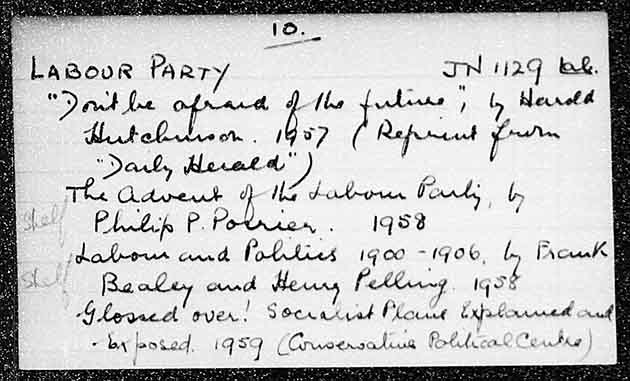 10.
LABOUR PARTY JN 1129 Lab.
"Don't be afraid of the future", by Harold
Hutchinson. 1957 (Reprint from
"Daily Herald")
The Advent of the Labour Party, by
Shelf Philip P. Poirier. 1958
Labour and Politics 1900-1906, by Frank
Shelf Bealey and Henry Pelling. 1958
Glossed over! Socialist Plans Explained and
Exposed. 1959 (Conservative Political Centre)